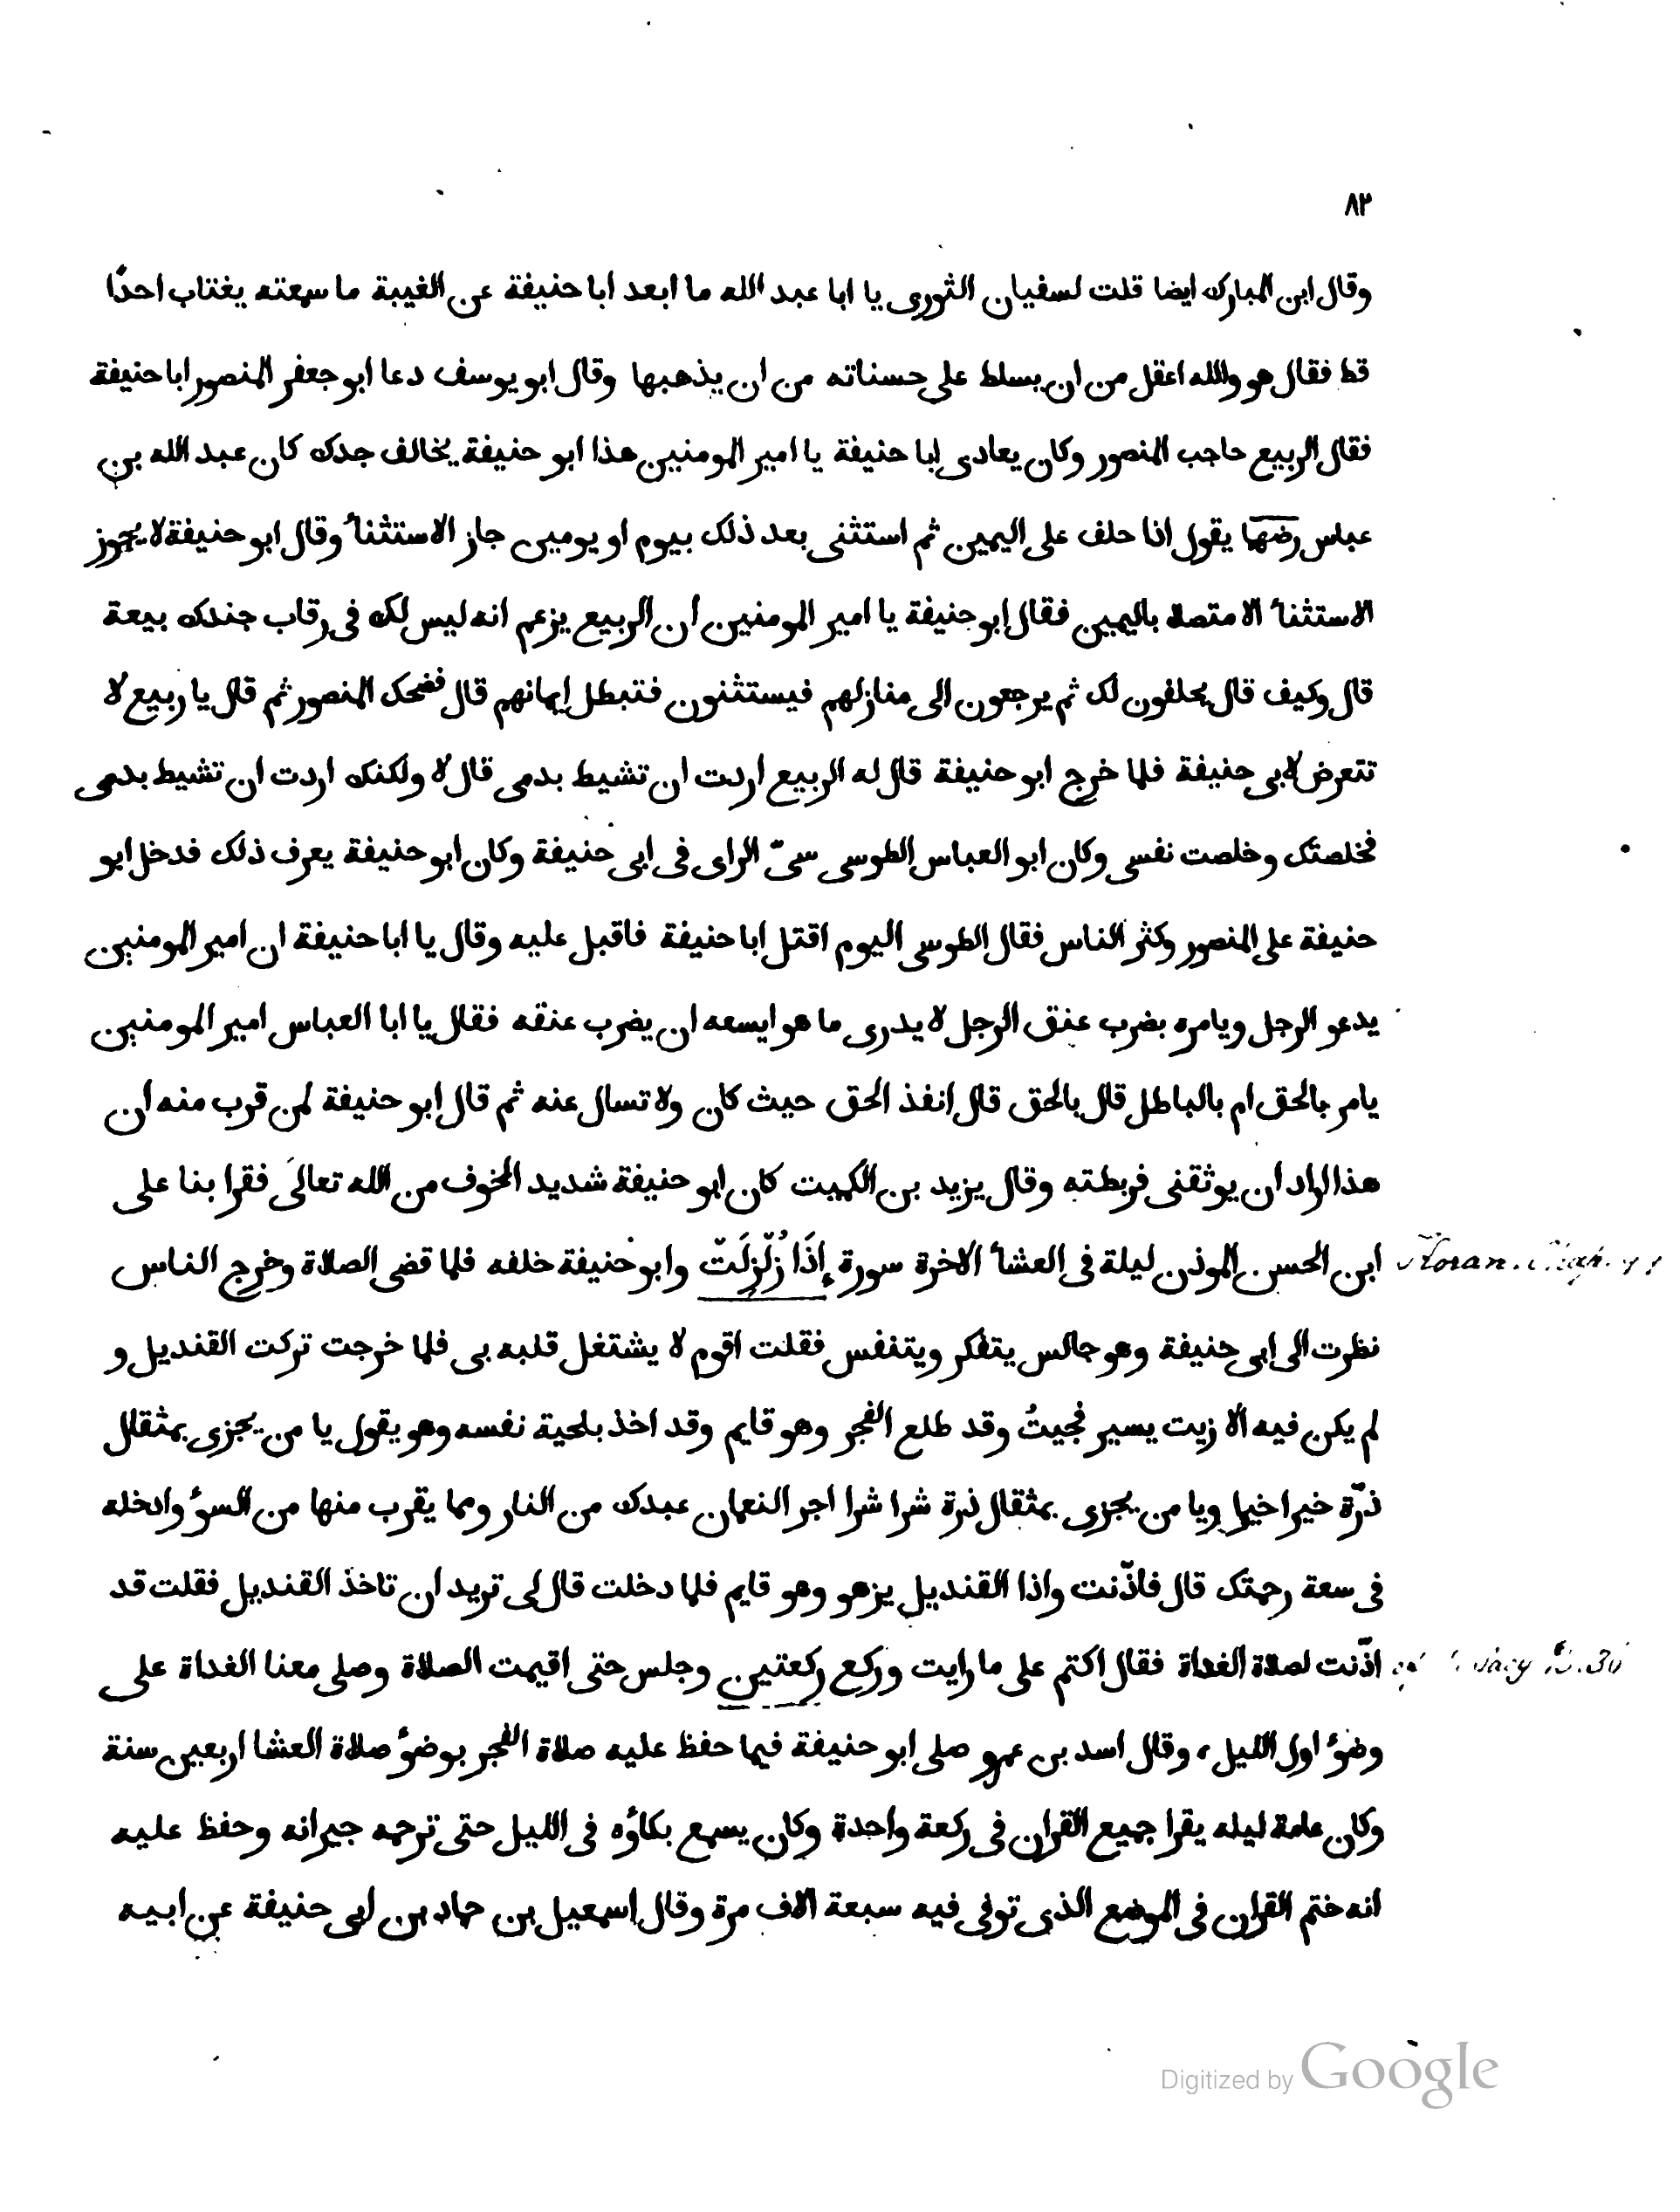 ٨٣
وقال ابن المبارك ايضا قلت لسفيان الثورى يا ابا عبد الله ما ابعد ابا حنيفة عن الغيبة ما سمعته يغتاب احدًا
قط فقال هو والله اعقل من ان يسلط على حسناته من ان يذهبها وقال ابو يوسف دعا ابو جعفر المنصور ابا حنيفة
فقال الربيع حاجب المنصور وكان يعادى ابا حنيفة يا امير المومنين هذا ابو حنيفة يخالف جدك كان عبد الله بن
عباس رضهما يقول اذا حلف على اليمين ثم استثنى بعد ذلك بيوم او يومين جاز الاستثنأ وقال ابو حنيفة لا يجوز
الاستثنأ الا متصلا باليمين فقال ابو حنيفة يا امير المومنين ان الربيع يزعم انه ليس لك فى رقاب جندك بيعة
قال وكيف قال يحلفون لك ثم يرجعون الى منازلهم فيستثنون فتبطل ايمانهم قال فضحك المنصور ثم قال يا ربيع لا
تتعرض لابى حنيفة فلما خرج ابو حنيفة قال له الربيع اردت ان تشيط بدمى قال لا ولكنك اردت ان تشيط بدمى
فخلصتك وخلصت نفسى وكان ابو العباس الطوسى سىّ الراى فى ابى حنيفة وكان ابو حنيفة يعرف ذلك فدخل ابو
حنيفة على المنصور وكثر الناس فقال الطوسى اليوم اقتل ابا حنيفة فاقبل عليه وقال يا ابا حنيفة ان امير المومنين
يدعو الرجل ويامره بضرب عنق الرجل لا يدرى ما هو ايسعه ان يضرب عنقه فقال يا ابا العباس امير المومنين
يامر بالحق ام بالباطل قال بالحق قال انفذ الحق حيث كان ولا تسال عنه ثم قال ابو حنيفة لمن قرب منه ان
هذا اراد ان يوثقنى فربطته وقال يزيد بن الكميت كان ابو حنيفة شديد الخوف من الله تعالى فقرا بنا على
ابن الحسن الموذن ليلة فى العشأ الاخرة سورة إِذَا زُلْزِلَتْ وابو حنيفة خلفه فلما قضى الصلاة وخرج الناس
Koran.
نظرت الى ابى حنيفة وهو جالس يتفكر ويتنفس فقلت اقوم لا يشتغل قلبه بى فلما خرجت تركت القنديل و
لم يكن فيه الا زيت يسير فجيتُ وقد طلع الفجر وهو قايم وقد اخذ بلحية نفسه وهو يقول يا من يجزى بمثقال
ذرّة خيرا خيرا ويا من يجزى بمثقال ذرة شرا شرا اجر النعمان عبدك من النار ومما يقرب منها من السوْ وادخله
فى سعة رحمتك قال فاذّنت واذا القنديل يزهو وهو قايم فلما دخلت قال لى تريد ان تاخذ القنديل فقلت قد
اذّنت لصلاة الغداة فقال اكتم على ما رايت وركع ركعتين وجلس حتى اقيمت الصلاة وصلى معنا الغداة على
وضوْ اول الليل ، وقال اسد بن عمرو صلى ابو حنيفة فيما حفظ عليه صلاة الفجر بوضوْ صلاة العشا اربعين سنة
وكان عامة ليله يقرا جميع القران فى ركعة واحدة وكان يسمع بكاؤه فى الليل حتى ترحمه جيرانه وحفظ عليه
انه ختم القران فى الموضع الذى توفى فيه سبعة الاف مرة وقال اسمعيل بن حماد بن ابى حنيفة عن ابيه
Digitized by Google